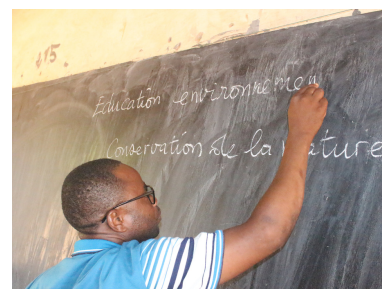 115
Education environnemen
Conservation de la nature